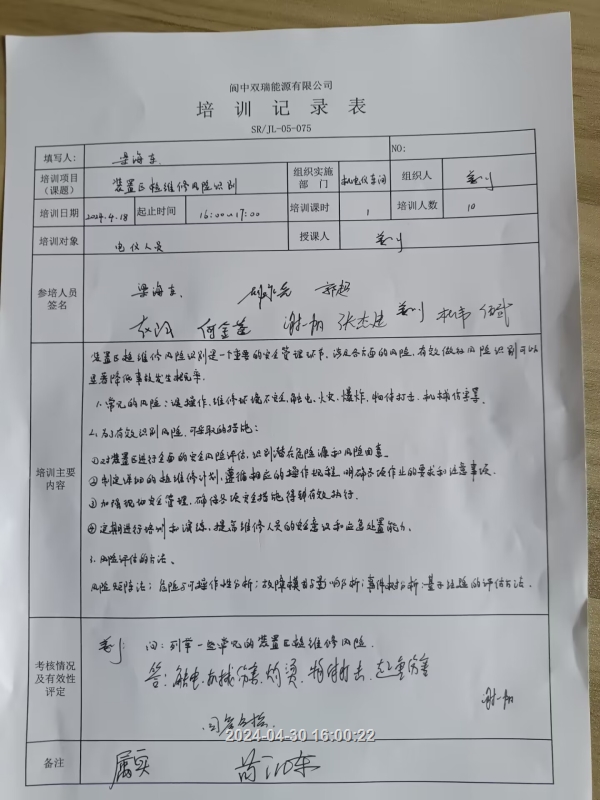 阆中双瑞能源有限公司
培训记录表
SR/JL-05-075
填写人： 梁海东 NO:
培训项目（课题） 装置区检维修风险识别 组织实施部门 机电仪车间 组织人 姜川
培训日期 2024.4.18 起止时间 16:00~17:00 培训课时 1 培训人数 10
培训对象 电仪人员 授课人 姜川
参培人员签名 梁海东 郭超
何金莲 谢翔 张杰 姜川 杜韦 伍武
培训主要内容
装置区检维修风险识别是一个重要的安全管理环节，涉及各方面的风险，有效做好风险识别可以
显著降低事故发生概率。
1.常见的风险：误操作、维修环境不安全、触电、火灾、爆炸、物体打击、机械伤害等
2.为有效识别风险，可采取的措施：
①对装置区进行全面的安全风险评估，识别潜在危险源和风险因素。
②制定详细的检维修计划，遵循相应的操作规程，明确各项作业的要求和注意事项。
③加强现场安全管理，确保各项安全措施得到有效执行。
④定期进行培训和演练，提高维修人员的安全意识和应急处置能力。
3.风险评估的方法、
风险矩阵法；危险与可操作性分析；故障模式与影响分析；事件树分析；基于经验的评估方法。
考核情况及有效性评定
姜川：问：列举一些常见的装置区检维修风险。
答：触电、机械伤害、灼烫、物体打击、起重伤害
谢翔
回答合格。
2024-04-30 16:00:22
备注 属实